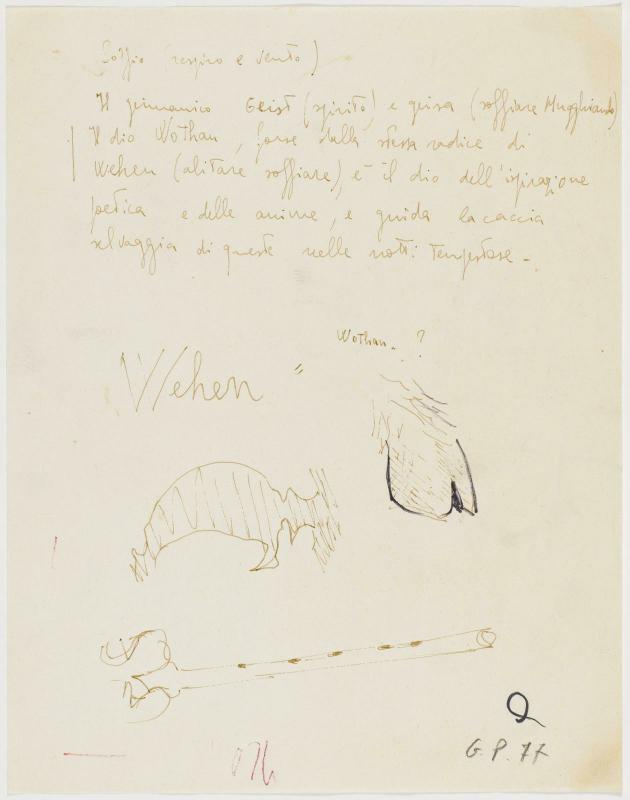 Soffio (respiro e vento)
Il germanico Geist (spirito) e geisa (soffiare Mugghiando)
Il dio Wothan, forse dalla stessa radice di
Wehen (alitare soffiare), è il dio dell'ispirazione
poetica e delle anime, e guida la caccia
selvaggia di queste nelle notti tempestose -
Wothan. ?
Wehen "
G. P. 77